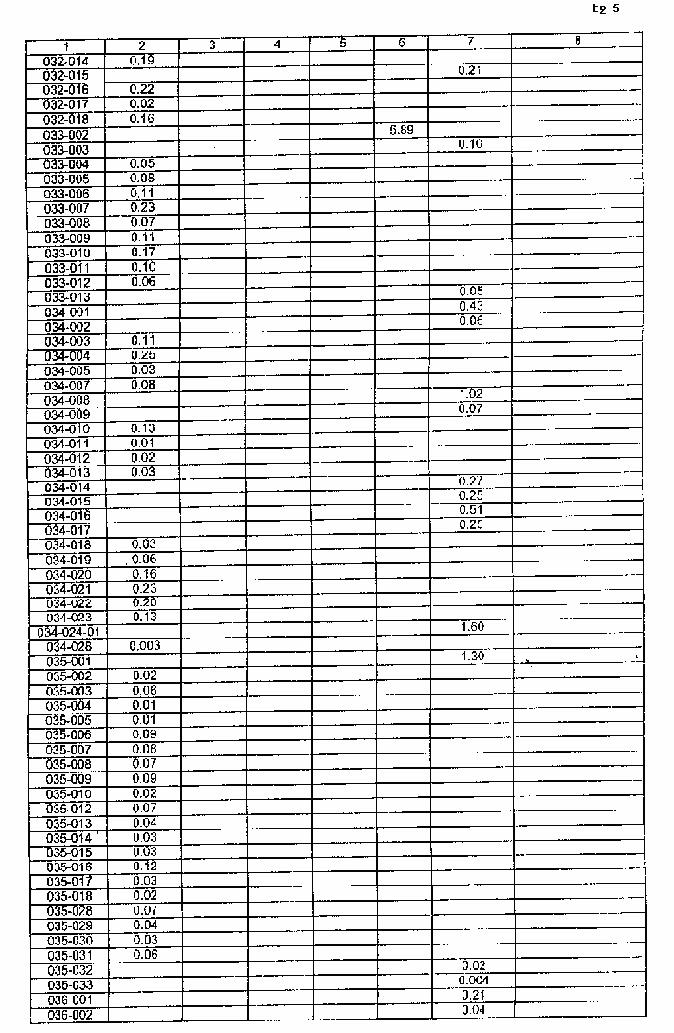 էջ 5
1 2 3 4 5 6 7 8
032-014 0.19
032-015 0.21
032-016 0.22
032-017 0.02
032-018 0.16
033-002
033-003
033-004 0.05
033-005
033-006 0.11
033-007 0.23
033-008 0.07
033-009 0.11
033-010 0.17
033-011
033-012 0.06
033-013
034-001
034-002
034-003 0.11
034-004
034-005 0.03
034-007 0.08
034-008
034-009 0.07
034-010 0.13
034-011 0.01
034-012 0.02
034-013 0.03
034-014 0.27
034-015
034-016 0.51
034-017
034-018 0.03
034-019 0.06
034-020 0.16
034-021 0.23
034-022 0.20
034-023 0.13
034-024-01 1.60
034-028 0.003
035-001 1.30
035-002 0.02
035-003
035-004 0.01
035-005 0.01
035-006 0.09
035-007
035-008 0.07
035-009 0.09
035-010 0.02
035-012 0.07
035-013 0.04
035-014 0.03
035-015 0.03
035-016 0.12
035-017 0.03
035-018 0.02
035-028 0.07
035-029 0.04
035-030 0.03
035-031 0.06
035-032
035-033 0.004
036-001 0.21
036-002 0.04